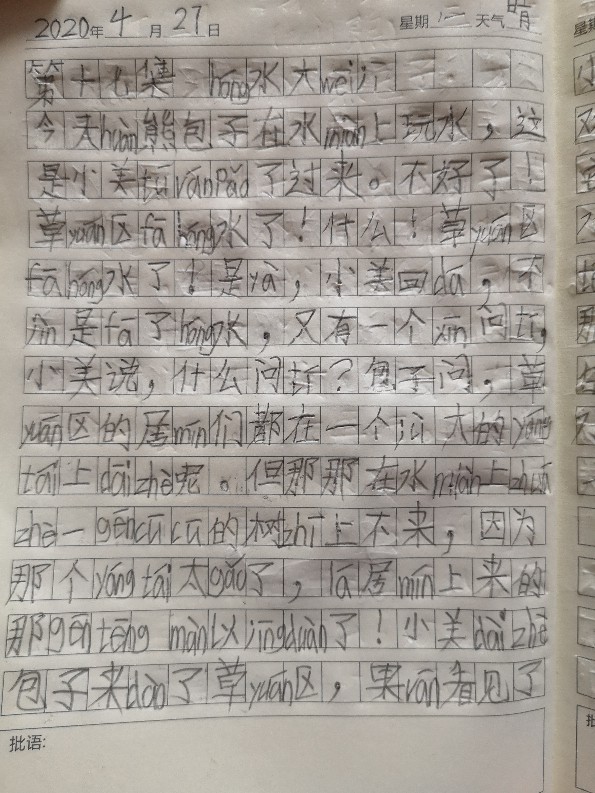 2020年4月27日 星期二 天气晴
第十七集：hóng水大wēi
今天huàn熊包子在水miàn上玩水，这
是小美tū ránpǎo了过来。不好了！
草yuán区fā hóng水了！什么！草yuán区
fā hóng水了！是yā，小美回dá，不
jǐn是fā了hóng水，又有一个xīn问tí，
小美说，什么问tí？包子问，草
yuán区的居mín们都在一个大的yáng
tái上dāizhe呢。但那那在水miàn上zhuā
zhe一gēncū cū的树zhī上不来，因为
那个yáng tái太gāo了，lā居mín上来的
那gēn téng màn yǐ jīngduàn了！小美dài zhe
包子来dào了草yuán区，果rán看见了
批语: